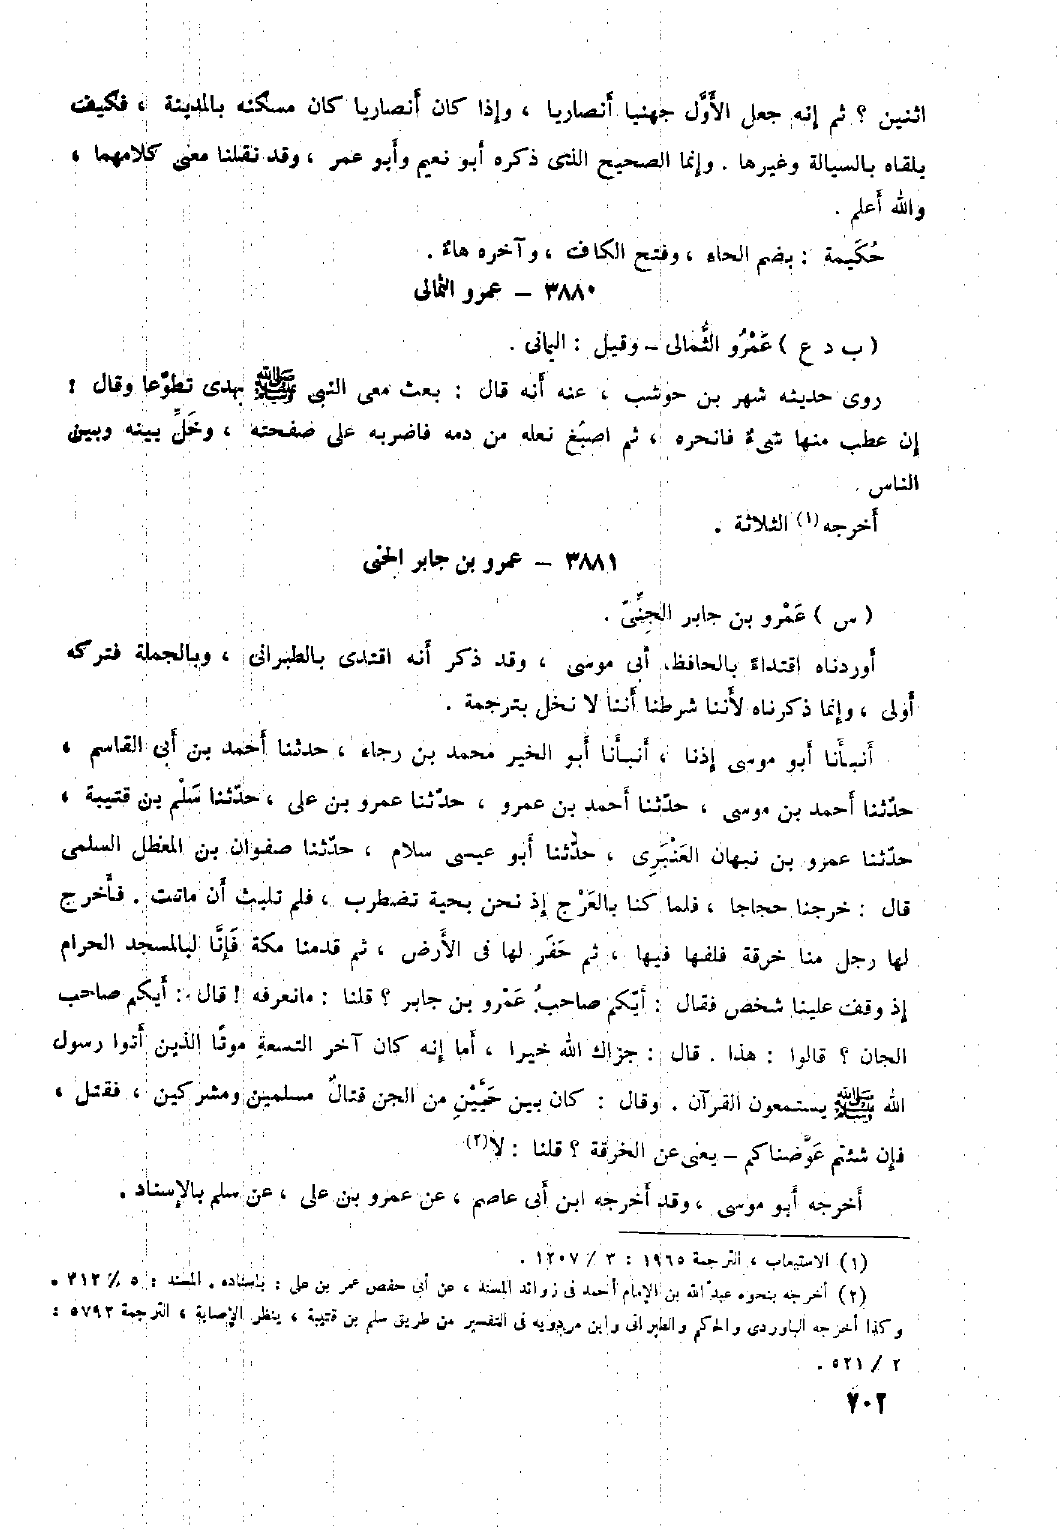 اثنين ؟ ثم إنه جعل الأَوَّل جهنيا أَنصاريا ، وإذا كان أَنصاريا كان مسكنه بالمدينة ، فكيف
يلقاه بالسيالة وغيرها . وإنما الصحيح الذى ذكره أبو نعيم وأَبو عمر ، وقد نقلنا معنى كلامهما ،
والله أَعلم .
حُكَيمة : بضم الحاء ، وفتح الكاف ، وآخره هاءٌ .
٣٨٨٠ – عمرو الثمالى
( ب د ع ) عَمْرُو الثُّمالى – وقيل : اليمانى .
روى حديثه شهر بن حوشب ، عنه أَنه قال : بعث معى النبى ﷺ بهدى تطوّعا وقال :
إن عطب منها شىءٌ فانحره ، ثم اصبُغ نعله من دمه فاضربه على صفحته ، وخَلِّ بينه وبين
الناس .
أَخرجه (١) الثلاثة .
٣٨٨١ – عمرو بن جابر الجنى
( س ) عَمْرو بن جابر الجِنِّىّ .
أَوردناه اقتداءً بالحافظ أبى موسى ، وقد ذكر أَنه اقتدى بالطبرانى ، وبالجملة فتركه
أَولى ، وإنما ذكرناه لأَننا شرطنا أَننا لا نخل بترجمة .
أَنبأَنا أَبو موسى إذنا ، أَنبأَنا أَبو الخير محمد بن رجاء ، حدثنا أَحمد بن أَبى القاسم ،
حدّثنا أَحمد بن موسى ، حدّثنا أَحمد بن عمرو ، حدّثنا عمرو بن على ، حدّثنا سَلْم بن قتيبة ،
حدّثنا عمرو بن نبهان العَنْبَرِى ، حدّثنا أَبو عيسى سلام ، حدّثنا صفوان بن المعطل السلمى
قال : خرجنا حجاجا ، فلما كنا بالعَرْج إذ نحن بحية تضطرب ، فلم تلبث أَن ماتت . فأَخرج
لها رجل منا خرقة فلفها فيها ، ثم حَفَر لها فى الأَرض ، ثم قدمنا مكة فَإنَّا لبالمسجد الحرام
إذ وقف علينا شخص فقال : أَيّكم صاحبُ عَمْرو بن جابر ؟ قلنا : مانعرفه ! قال : أَيكم صاحب
الجان ؟ قالوا : هذا . قال : جزاك الله خيرا ، أَما إنه كان آخر التسعةِ موتًا الذين أَتوا رسول
الله ﷺ يستمعون القرآن . وقال : كان بين حَيَّيْنِ من الجن قتالٌ مسلمين ومشركين ، فقتل ،
فإن شئتم عَوَّضناكم – يعنى عن الخرقة ؟ قلنا : لا(٢)
أَخرجه أَبو موسى ، وقد أَخرجه ابن أَبى عاصم ، عن عمرو بن على ، عن سلم بالإسناد .
(١) الاستيعاب ، الترجمة ١٩٦٥ : ٣ / ١٢٠٧ .
(٢) أخرجه بنحوه عبد الله بن الإمام أحمد فى زوائد المسند ، عن أبى حفص عمر بن على : بإسناده . المسند : ٥ / ٣١٢ .
وكذا أخرجه الباوردى والحكم والطبرانى وابن مردويه فى التفسير من طريق سلم بن قتيبة ، ينظر الإصابة ، الترجمة ٥٧٩٢ :
٢ / ٥٢١ .
٧٠٢